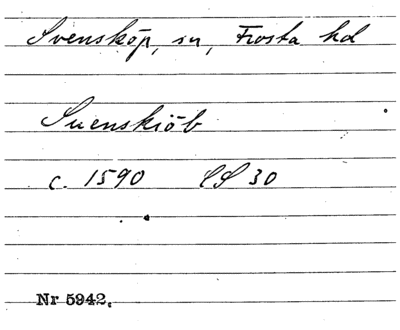 Svensköp, sn, Frosta hd
Suenskiöb
c. 1590 LS 30
Nr 5942.